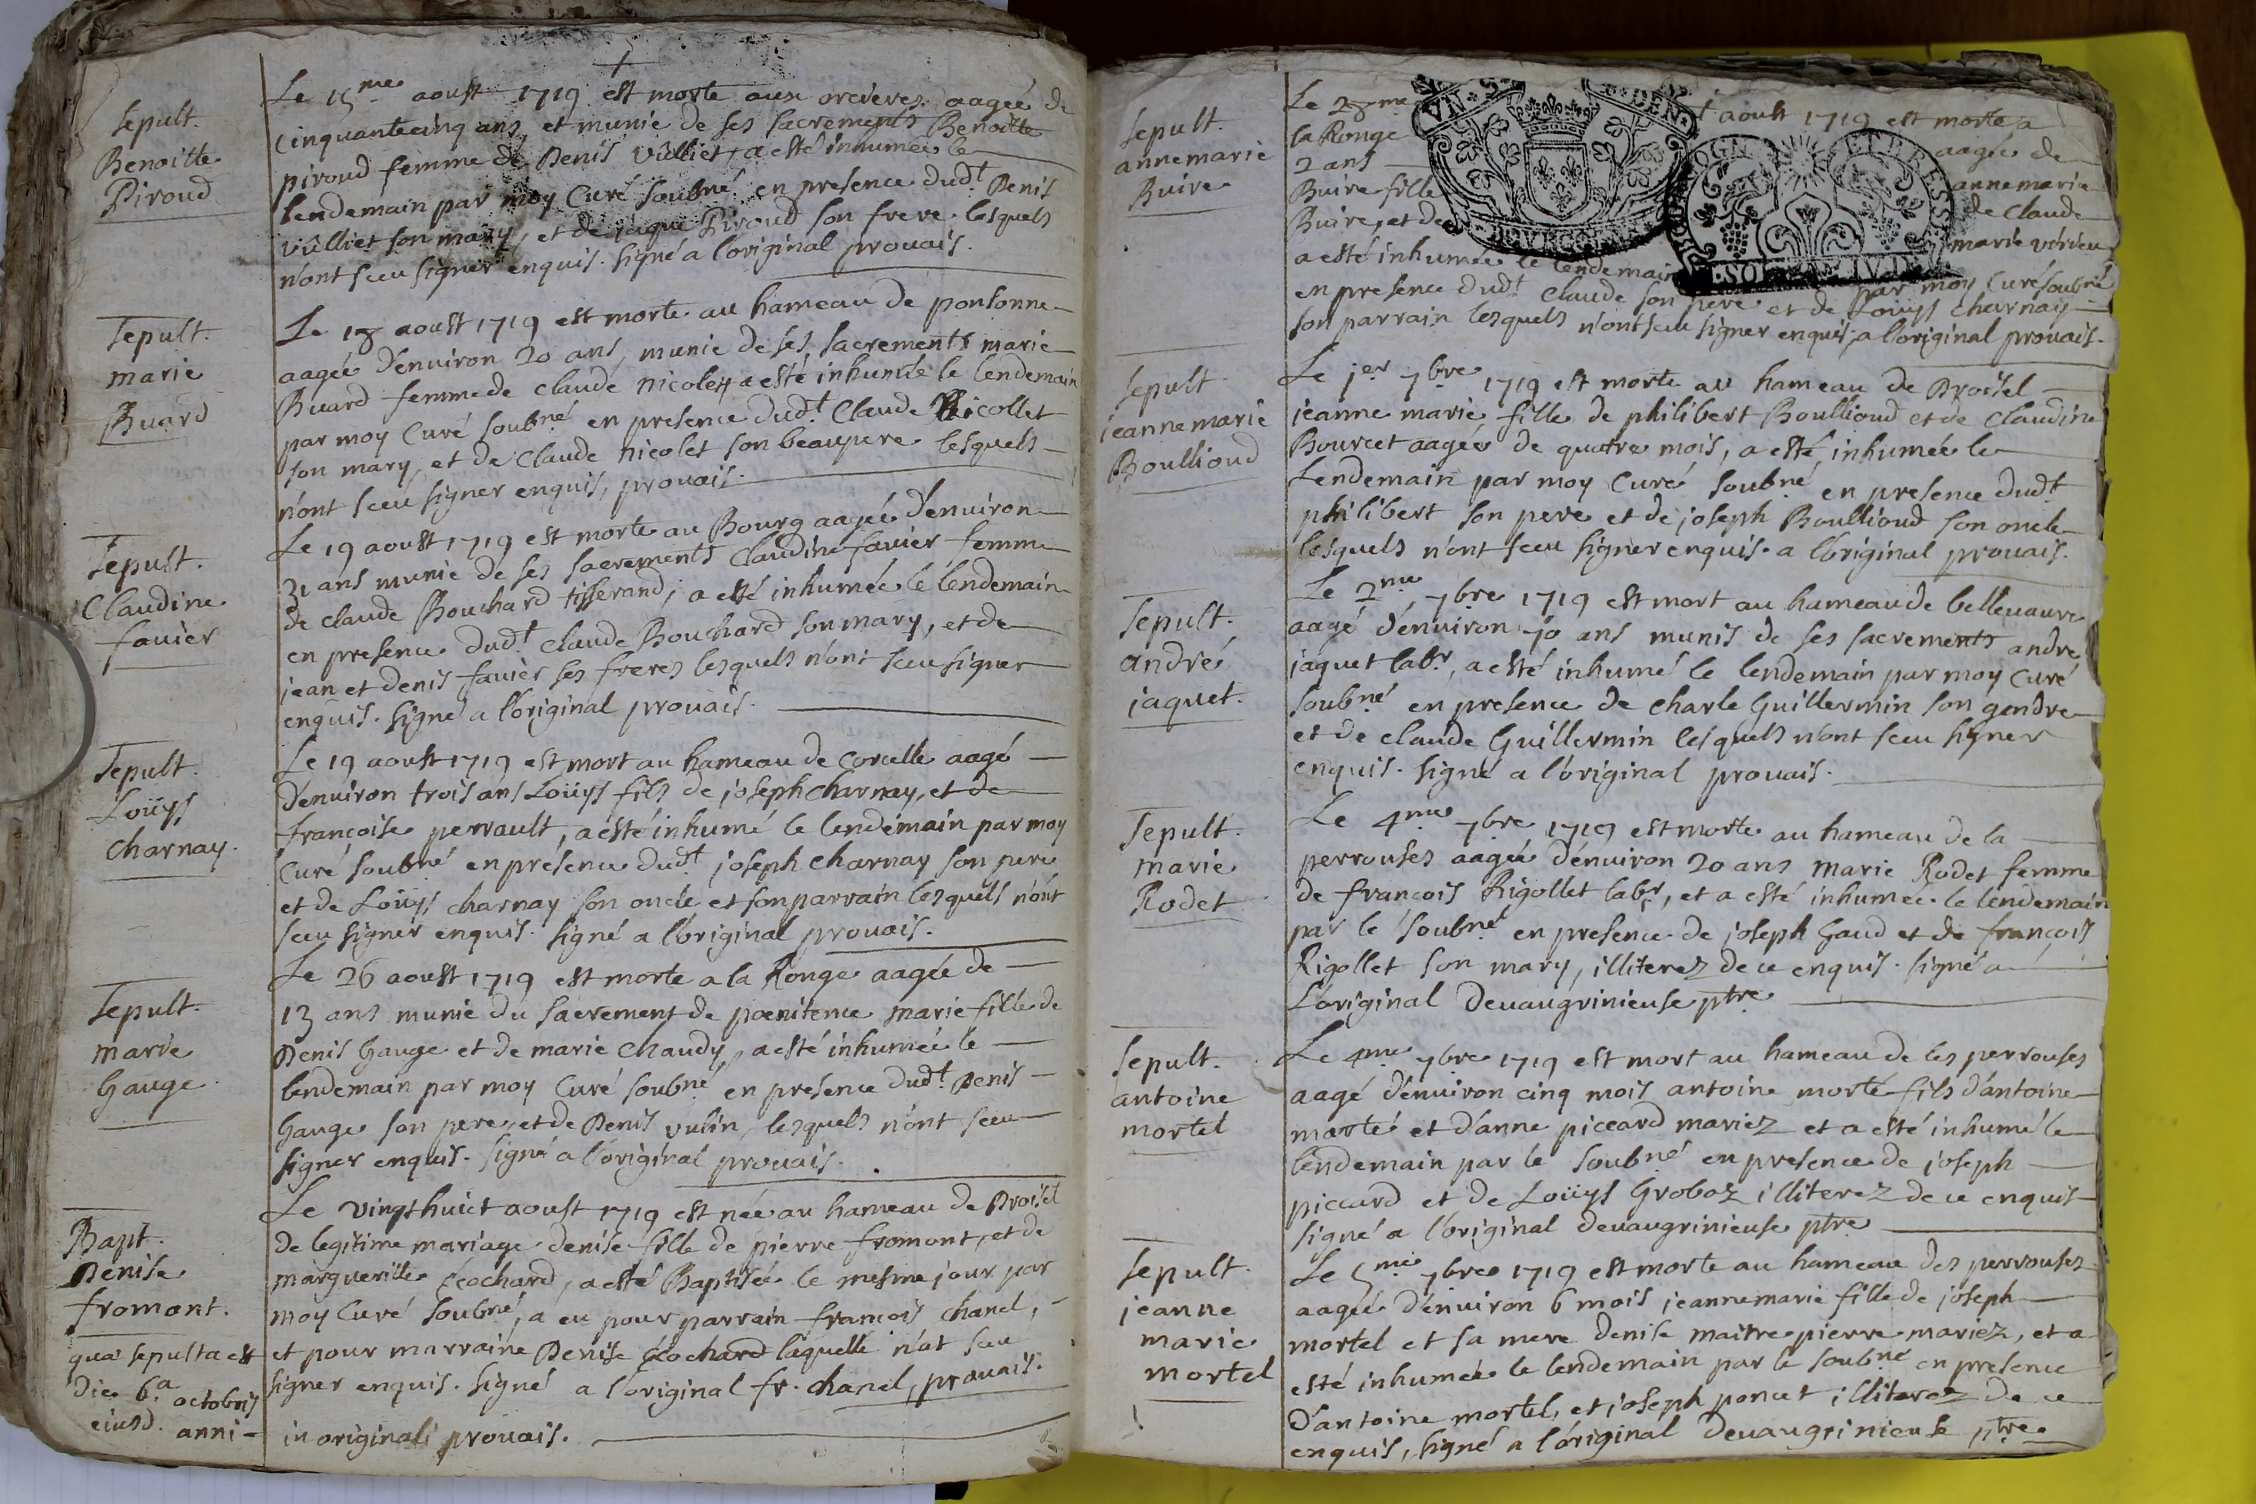 Sepult.
Benoitte
Piroud
Le 15me aoust 1719 est morte aux orcieres aagée de
cinquantecinq ans, et munie de ses sacrements Benoitte
piroud femme de Denis vûlliet, a esté inhumée le
lendemain par moy Curé soubné en presence dudt Denis
vûlliet son mary, et de jaque Piroud son frere lesquels
n'ont sceu signer enquis. signé a l'original prouais.
Sepult.
marie
Buard
Le 18 aoust 1719 est morte au hameau de ponsonne
aagée d'enuiron 20 ans, munie de ses sacrements marie
Buard femme de claude nicolet, a esté inhumée le lendemain
par moy Curé soubné en presence dudt Claude Nicollet
son mary, et de Claude nicolet son beaupere lesquels
n'ont sceu signer enquis, prouais.
Sepult.
Claudine
favier
Le 19 aoust 1719 est morte au Bourg aagée d'enuiron
31 ans munie de ses sacrements Claudine favier femme
de claude Bouchard tisserand, a esté inhumée le lendemain
en presence dudt Claude Bouchard son mary, et de
jean et denis favier ses freres lesquels n'ont sceu signer
enquis. signé a l'original prouais.
Sepult.
Loüys
Charnay.
Le 19 aoust 1719 est mort au hameau de corcelle aagé
d'enuiron trois ans Loüys fils de joseph charnay, et de
françoise perrault, a esté inhumé le lendemain par moy
Curé soubné en présence dudt joseph charnay son pere
et de Loüys charnay son oncle et son parrain lesquels n'ont
sceu signer enquis. signé a l'original prouais.
Sepult.
marie
Gauge
Le 26 aoust 1719 est morte a la Ronge aagée de
13 ans munie du sacrement de poenitence marie fille de
Denis Gauge et de marie Chaudy, a esté inhumée le
lendemain par moy Curé soubné en presence dudt Denis
Gauge son pere, et de Denis vulin lesquels n'ont sceu
signer enquis. signé a l'original prouais.
Bapt.
Denise
fromont.
quæ sepulta est
die 6a octobris
eiusd. anni
Le vingthuict aoust 1719 est née au hameau de Broisel
de legitime mariage denise fille de pierre fromont, et de
marguerille Cochard, a esté Baptisée le mesme jour par
moy Curé soubné, a eu pour parrain françois chanel,
et pour marraine Denise Cochard laquelle n'at sceu
signer enquis. signé a l'original fr. chanel, prouais.
in originali prouais.
Sepult.
annemarie
Buire
Le 28me aoust 1719 est morte a
la Ronge aagée de
2 ans annemarie
Buire fille de Claude
Buire, et de marie
a esté inhumée le lendemain par moy Curé soubné
en presence dudt claude son pere et de Loüys charnay
son parrain lesquels n'ont sceu signer enquis, a l'original prouais.
Sepult
jeannemarie
Boullioud
Le jer 7bre 1719 est morte au hameau de Broisel
jeanne marie fille de philibert Boullioud et de Claudine
Bourcet aagée de quatre mois, a esté inhumée le
Lendemain par moy Curé soubné en presence dudt
philibert son pere et de joseph Boullioud son oncle
lesquels n'ont sceu signer enquis. a l'original prouais.
Sepult.
andré
jaquet.
Le 2me 7bre 1719 est mort au hameau de bellevaure
aagé d'enuiron 70 ans munis de ses sacrements andre
jaquet labr, a esté inhumé le lendemain par moy Curé
soubné en presence de charle Guillermin son gendre
et de claude Guillermin lesquels n'ont sceu signer
enquis. signé a l'original prouais.
Sepult.
marie
Rodet
Le 4me 7bre 1719 est morte au hameau de la
perrouses aagée d'enuiron 20 ans marie Rodet femme
de françois Rigollet labr, et a esté inhumée le lendemain
par le soubné en presence de joseph Gaud et de françois
Rigollet son mary, illiterez de ce enquis. signé a
L'original Devaugrinieuse ptre
Sepult.
antoine
mortel
Le 4me 7bre 1719 est mort au hameau de les perrouses
aagé d'enuiron cinq mois antoine morté fils d'antoine
morté et d'anne piccard mariez et a esté inhumé le
lendemain par le soubné en presence de joseph
piccard et de Loüys Groboz illiterez de ce enquis
signé a l'original devaugrinieuse ptre
Sepult.
jeanne
marie
mortel
Le 5me 7bre 1719 est morte au hameau des perrouses
aagée d'enuiron 6 mois jeannemarie fille de joseph
mortel et sa mere denise maitrepierre mariez, et a
esté inhumée le lendemain par le soubné en presence
d'antoine mortel, et joseph poncet illiterez de ce
enquis, signé a l'original Devaugrinieuse ptre